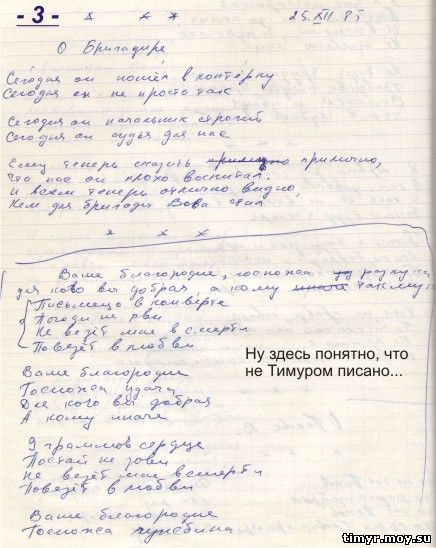 - 3 - * * * 25.XII.85
О Бригадире
Сегодня он пошёл в контёрку
Сегодня он не просто так
Сегодня он начальник строгий
Сегодня он судья для нас
Ему теперь сказать прилично,
Что нас он плохо воспитал.
И всем теперь отлично видно,
Кем для бригады Вова стал
* * *
Ваше благородие, госпожа разлука
для кого вы добрая, а кому
Письмецо в конверте
Погоди не рви
Не везёт мне в смерти
Повезёт в любви
Ну здесь понятно, что
не Тимуром писано...
Ваше благородие
Госпожа удача
Для кого вы добрая
А кому иначе
9 граммов сердце
Постой не зови
Не везёт мне в смерти
Повезёт в любви
Ваше благородие
Госпожа чужбина
timyr.moy.su